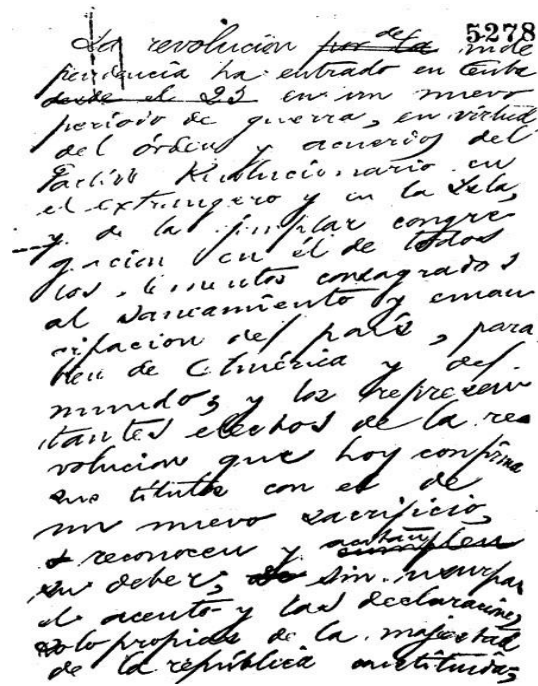 5278
La revolucion por de la inde
pendencia ha entrado en Cuba
desde el 23 en un nuevo
periodo de guerra, en virtud
del órden y acuerdos del
Partido Revolucionario en
el extrangero y en la Isla,
y de la ejemplar congre
gacion en él de todos
los elementos consagrados
al saneamiento y eman
cipacion del país, para
bien de America y del
mundo; y los represen
tantes electos de la re
volucion que hoy confirma
sus titulos con el de
un nuevo sacrificio,
reconocen y acatan cumplen
su deber, sin usurpar
el acento y las declaraciones
solo propias de la majestad
de la república constituida,